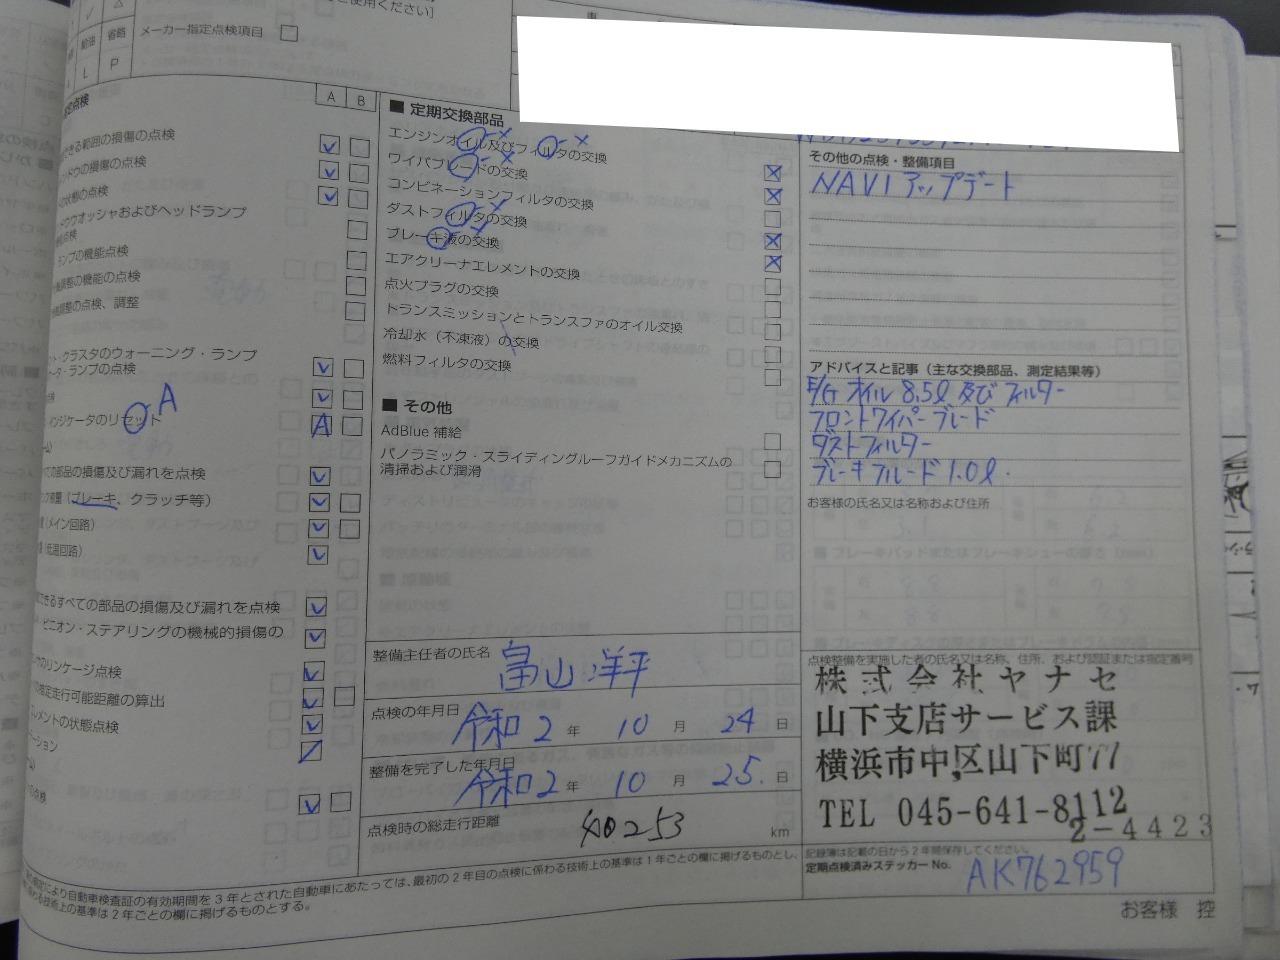 ご使用ください]
給油
省略
メーカー指定点検項目
L P
A B
できる範囲の損傷の点検
の損傷の点検
の状態の点検
ウオッシャおよびヘッドランプ
点検
ランプの機能点検
調整の機能の点検
調整の点検、調整
クラスタのウォーニング・ランプ
ランプの点検
インジケータのリセット
A
A
ての部品の損傷及び漏れを点検
(ブレーキ、クラッチ等)
(メイン回路)
(低温回路)
できるすべての部品の損傷及び漏れを点検
ピニオン・ステアリングの機械的損傷の
のリンケージ点検
推定走行可能距離の算出
エレメントの状態点検
の点検
■ 定期交換部品
エンジンオイル及びフィルタの交換
ワイパブレードの交換
コンビネーションフィルタの交換
ダストフィルタの交換
ブレーキ液の交換
エアクリーナエレメントの交換
点火プラグの交換
トランスミッションとトランスファのオイル交換
冷却水(不凍液)の交換
燃料フィルタの交換
■ その他
AdBlue 補給
パノラミック・スライディングルーフガイドメカニズムの
清掃および潤滑
整備主任者の氏名
畠山 洋平
点検の年月日
令和 2 年 10 月 24 日
整備を完了した年月日
令和 2 年 10 月 25. 日
点検時の総走行距離
40253 km
その他の点検・整備項目
NAVI アップデート
アドバイスと記事(主な交換部品、測定結果等)
E/G オイル 8.5ℓ 及び フィルター
フロントワイパーブレード
ダストフィルター
ブレーキフルード 1.0ℓ.
お客様の氏名又は名称および住所
点検整備を実施した者の氏名又は名称、住所、および認証または指定番号
株式会社ヤナセ
山下支店サービス課
横浜市中区山下町77
TEL 045-641-8112
2-4423
記録簿は記載の日から2年間保存してください。
定期点検済みステッカー No. AK762959
により自動車検査証の有効期間を3年とされた自動車にあたっては、最初の2年目の点検に係わる技術上の基準は1年ごとの欄に掲げるものとし、
技術上の基準は2年ごとの欄に掲げるものとする。
お客様 控